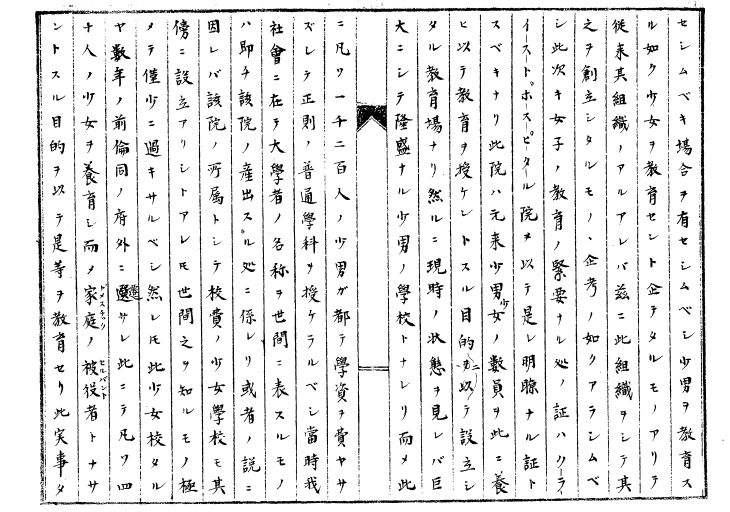 セシムベキ場合ヲ有セシムベシ少男ヲ教育ス
ル如ク少女ヲ教育セント企テタルモノアリテ
従来其組織ノアルアレバ茲ニ此組織ヲシテ其
之ヲ創立シタルモノヽ企考ノ如クアラシムベ
シ此次キ女子ノ教育ノ緊要ナル処ノ証ハクライ
イストホスピタル院ヲ以テ是レ明瞭ナル証ト
スベキナリ此院ハ元来少男少女ノ数員ヲ此ニ養
ヒ以テ教育ヲ授ケントスル目的ヲ以テ設立シ
タル教育場ナリ然ルニ現時ノ状態ヲ見レバ巨
大ニシテ隆盛ナル少男ノ學校トナレリ而メ此
ニ凡ソ一千二百人ノ少男ガ都テ學資ヲ費ヤサ
ズレテ正則ノ普通學科ヲ授ケラルベシ當時我
社會ニ在テ大學者ノ名称ヲ世間ニ表スルモノ
ハ即チ該院ノ産出スル処ニ係レリ或者ノ説ニ
因レバ該院ノ所属トシテ校費ノ少女學校モ其
傍ニ設立アリシトアレモ世間之ヲ知ルモノ極
メテ僅少ニ過キサルベシ然レモ此少女校タル
ヤ数年ノ前倫同ノ府外ニ遷サレ此ニテ凡ソ四
十人ノ少女ヲ養育シ而メ家庭ノ被役者トナサ
ドメスチック セルバント
ントスル目的ヲ以テ是等ヲ教育セリ此実事タ